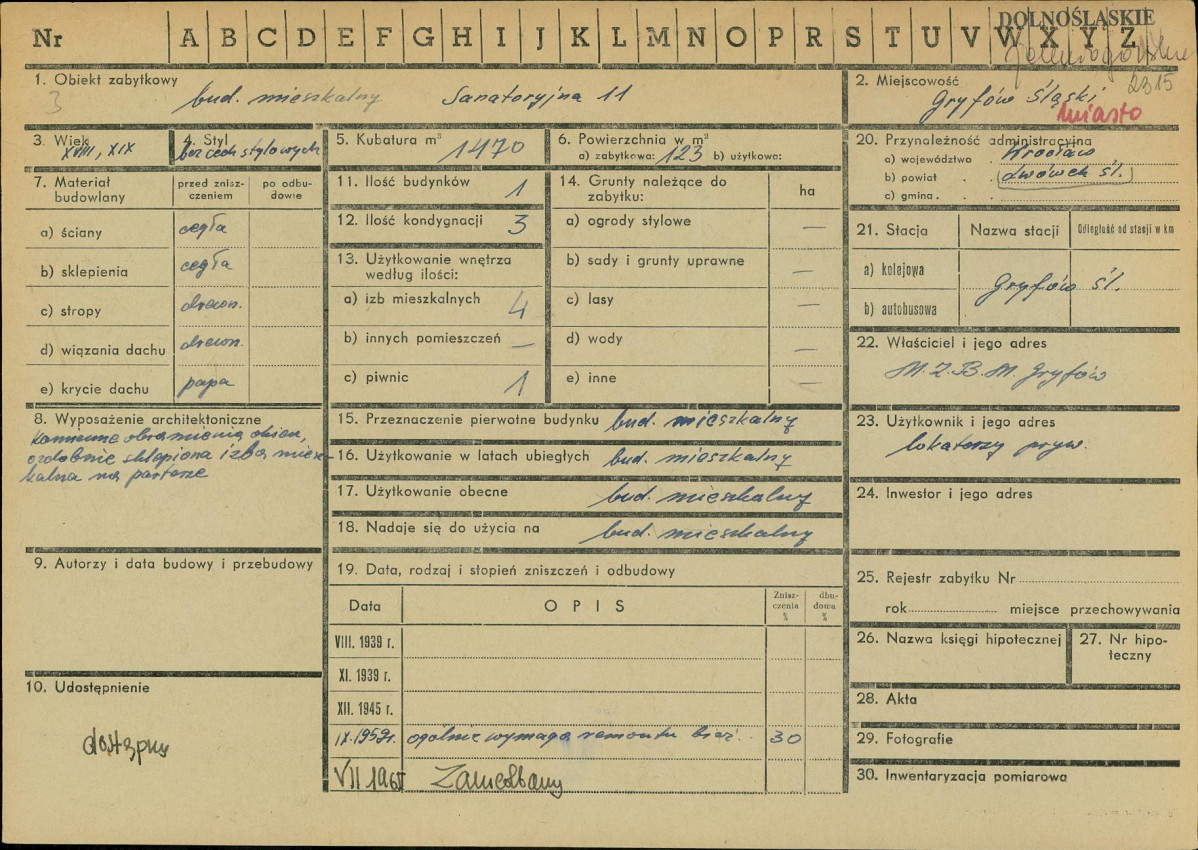 DOLNOŚLĄSKIE
Nr A B C D E F G H I J K L M N O P R S T U V W X Y Z
Jeleniogórskie
2315
1. Obiekt zabytkowy
3
bud. mieszkalny Sanatoryjna 11
2. Miejscowość
Gryfów Śląski
miasto
3. Wiek
XVIII, XIX
4. Styl
bez cech stylowych
5. Kubatura m³ 1470
6. Powierzchnia w m²
a) zabytkowa: 123 b) użytkowa:
20. Przynależność administracyjna
a) województwo . Wrocław
b) powiat . . Lwówek Śl.
c) gmina . . .
7. Materiał budowlany
przed zniszczeniem
po odbudowie
a) ściany cegła
b) sklepienia cegła
c) stropy drewn.
d) wiązania dachu drewn.
e) krycie dachu papa
11. Ilość budynków 1
12. Ilość kondygnacji 3
13. Użytkowanie wnętrza
według ilości:
a) izb mieszkalnych 4
b) innych pomieszczeń —
c) piwnic 1
14. Grunty należące do
zabytku:
ha
a) ogrody stylowe —
b) sady i grunty uprawne —
c) lasy —
d) wody —
e) inne —
21. Stacja Nazwa stacji Odległość od stacji w km
a) kolejowa
Gryfów Śl.
b) autobusowa
22. Właściciel i jego adres
M.Z.B.M. Gryfów
8. Wyposażenie architektoniczne
kamienne obramienia okien,
ozdobnie sklepiona izba miesz-
kalna na parterze
15. Przeznaczenie pierwotne budynku bud. mieszkalny
16. Użytkowanie w latach ubiegłych bud. mieszkalny
17. Użytkowanie obecne bud. mieszkalny
18. Nadaje się do użycia na bud. mieszkalny
23. Użytkownik i jego adres
lokatorzy pryw.
24. Inwestor i jego adres
9. Autorzy i data budowy i przebudowy
19. Data, rodzaj i stopień zniszczeń i odbudowy
Data OPIS Zniszczenia % dbudowa %
VIII. 1939 r.
XI. 1939 r.
XII. 1945 r.
IX.1959r. ogólnie wymaga remontu bież. 30
VII 196 Zaniedbany
25. Rejestr zabytku Nr
rok miejsce przechowywania
26. Nazwa księgi hipotecznej
27. Nr hipo-
teczny
10. Udostępnienie
dostępny
28. Akta
29. Fotografie
30. Inwentaryzacja pomiarowa